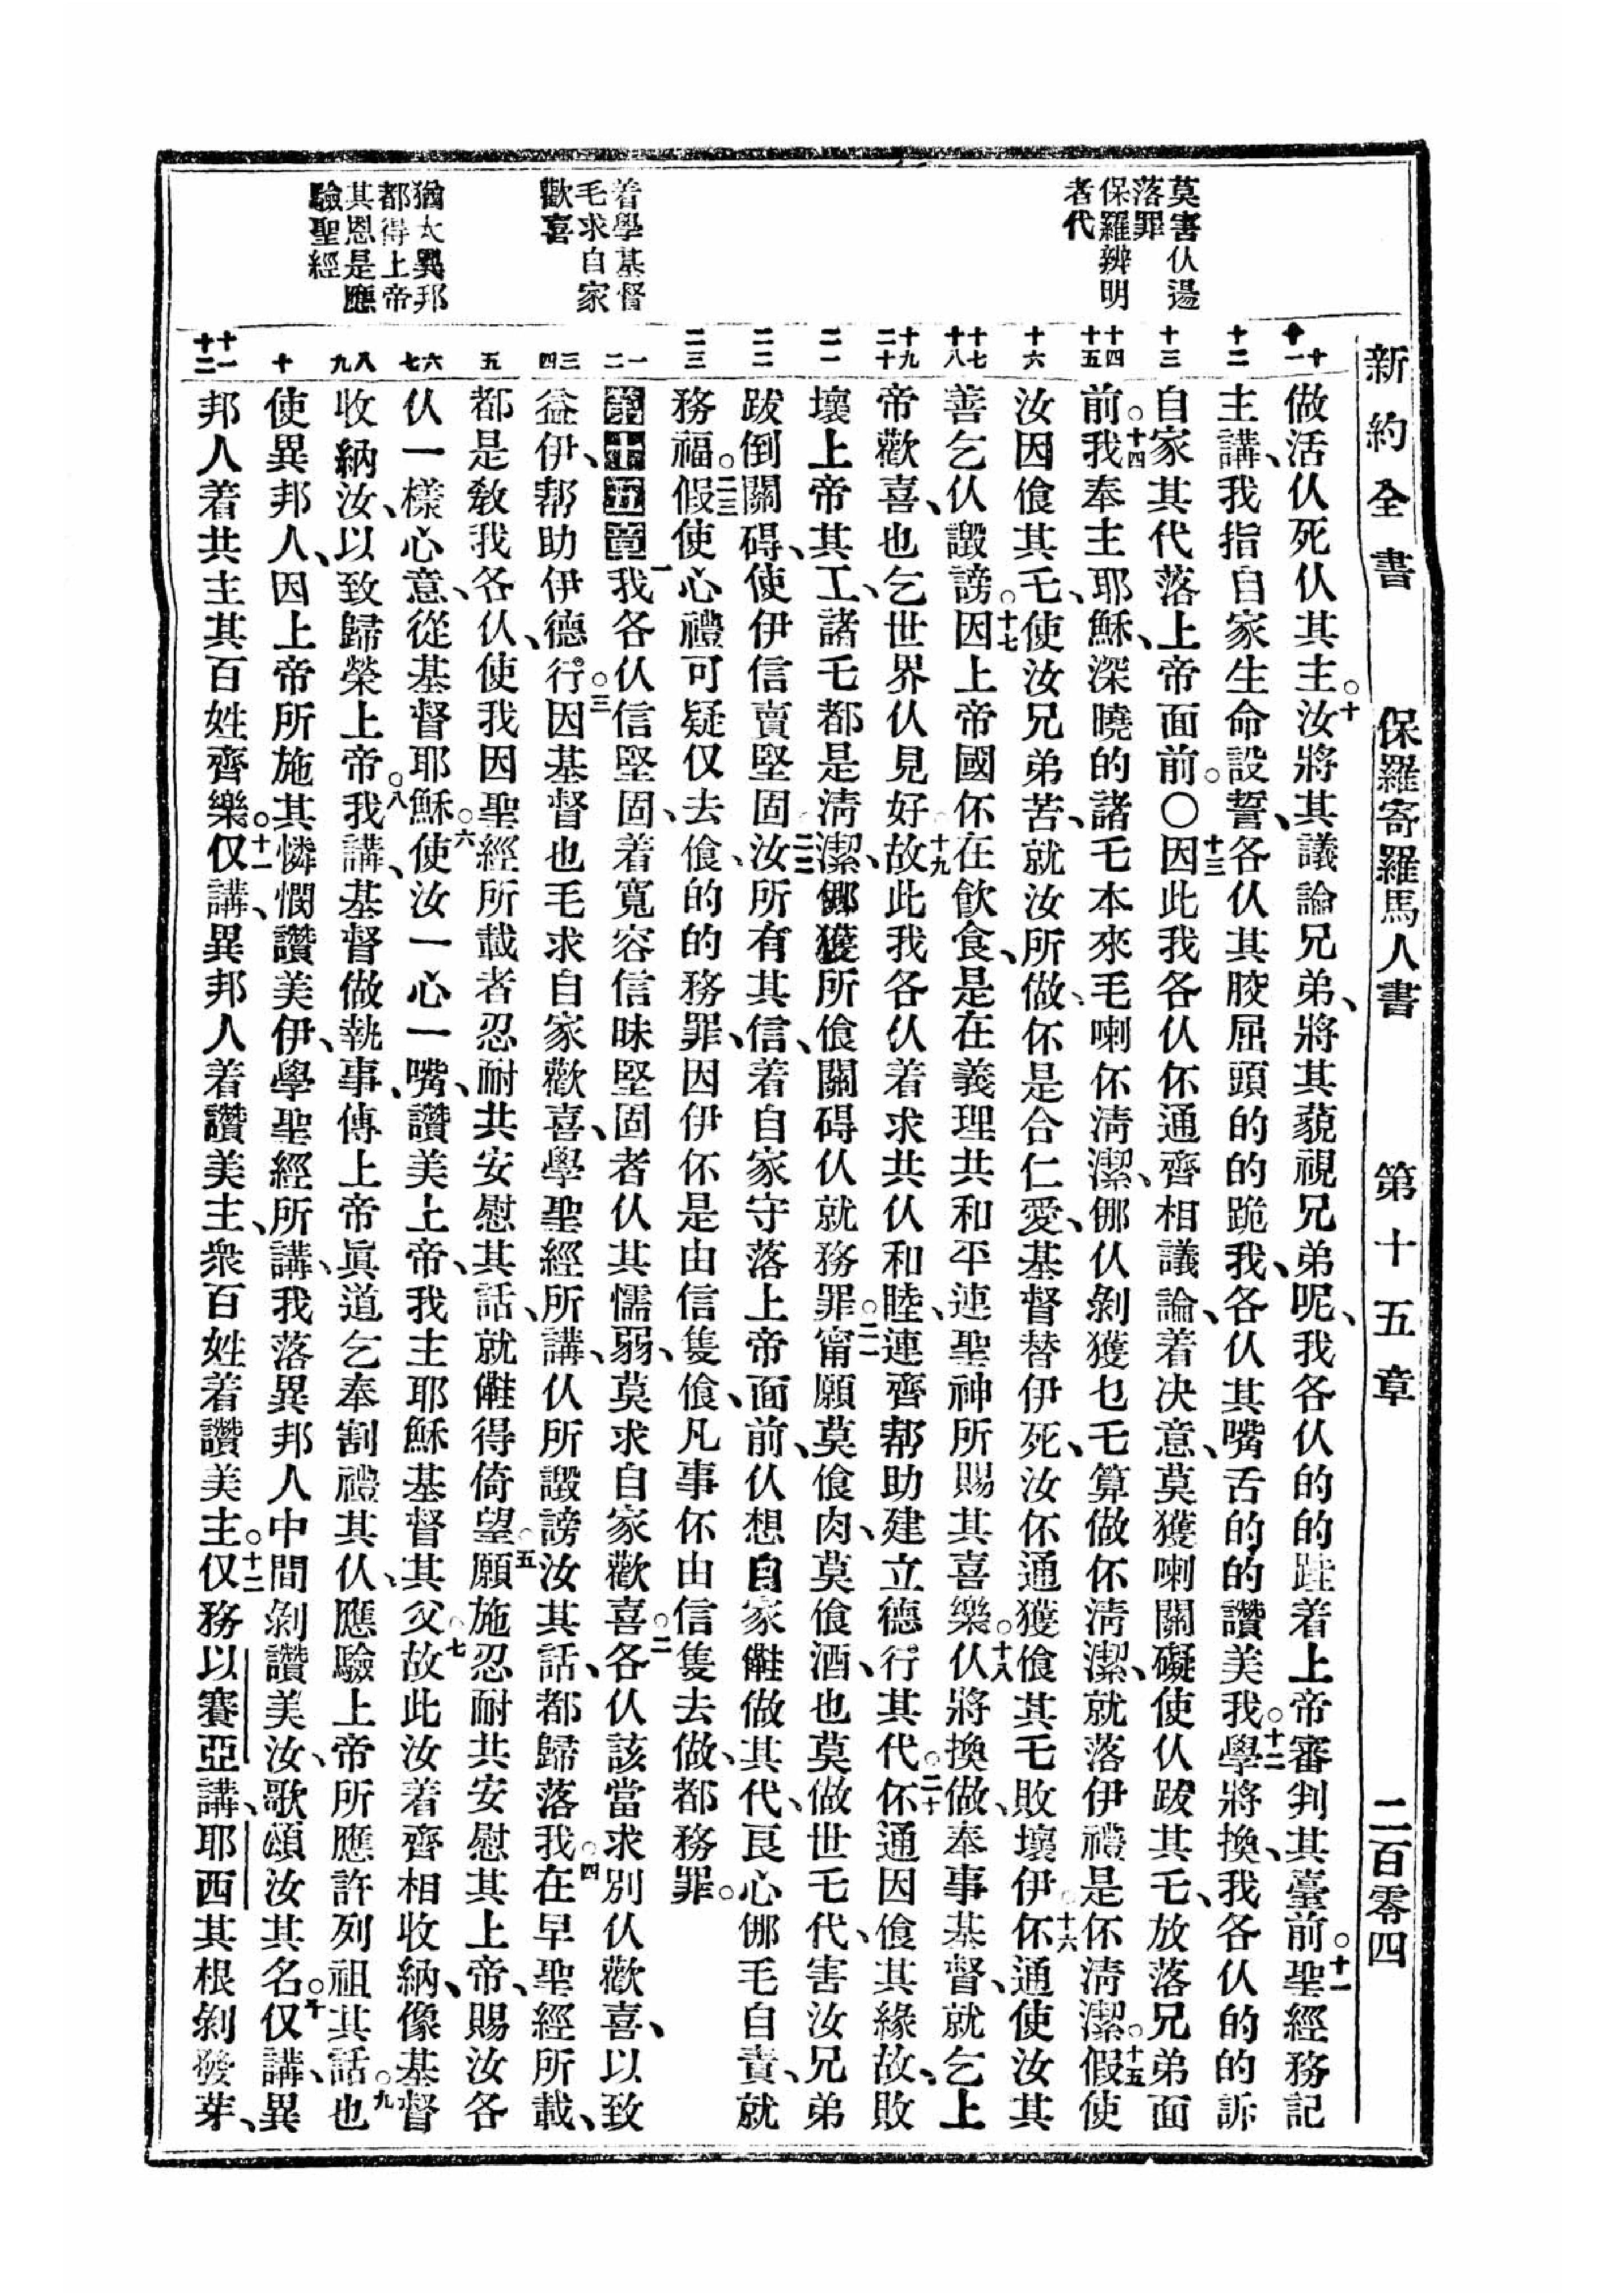 新約全書　保羅寄羅馬人書　第十五章　二百零四
莫害仫逷
落罪
保羅辨明
者代
着學基督
乇求自家
歡喜
猶太異邦
都得上帝
其恩是應
驗聖經
十 十一
十二
十三
十四 十五
十六
十七 十八
十九 二十
二一
二二
二三
一 二
三 四
五
六 七
八 九
十
十一 十二
做活仫死仫其主。十汝將其議論兄弟、將其藐視兄弟呢、我各仫的的跬着上帝審判其臺前。十一聖經務記
主講、我指自家生命設誓、各仫其骹屈頭的的跪我、各仫其嘴舌的的讚美我。十二學將換、我各仫的的訴
自家其代落上帝面前。〇十三因此我各仫伓通齊相議論、着决意、莫獲喇關礙使仫跋其乇、放落兄弟面
前。十四我奉主耶穌、深曉的諸乇本來乇喇伓淸潔、㑚仫剝獲乜乇算做伓淸潔、就落伊禮是伓淸潔。十五假使
汝因飡其乇、使汝兄弟苦、就汝所做、伓是合仁愛、基督替伊死、汝伓通獲飡其乇敗壞伊。十六伓通使汝其
善乞仫譭謗。十七因上帝國伓在飮食、是在義理共和平連聖神所賜其喜樂。十八仫將換做、奉事基督、就乞上
帝歡喜、也乞世界仫見好。十九故此我各仫着求共仫和睦、連齊帮助建立德行其代。二十伓通因飡其緣故、敗
壞上帝其工、諸乇都是淸潔、㑚獲所飡關碍仫就務罪。二一甯願莫飡肉、莫飡酒、也莫做世乇代、害汝兄弟
跋倒關碍、使伊信賣堅固。二二汝所有其信、着自家守落上帝面前、仫想自家𠆧做其代、良心㑚乇自責、就
務福。二三假使心禮可疑仅去飡、的的務罪、因伊伓是由信隻飡、凡事伓由信隻去做、都務罪。
第十五章一我各仫信堅固、着寬容信昧堅固者仫其懦弱、莫求自家歡喜。二各仫該當求別仫歡喜、以致
益伊、帮助伊德行。三因基督也乇求自家歡喜、學聖經所講、仫所譭謗汝其話、都歸落我。四在早聖經所載、
都是敎我各仫、使我因聖經所載者忍耐共安慰其話、就𠆧得倚望。五願施忍耐共安慰其上帝、賜汝各
仫一樣心意、從基督耶穌。六使汝一心一嘴、讚美上帝、我主耶穌基督其父。七故此汝着齊相收納、像基督
收納汝、以致歸榮上帝。八我講、基督做執事、傳上帝眞道乞奉割禮其仫、應驗上帝所應許列祖其話。九也
使異邦人、因上帝所施其憐憫讚美伊、學聖經所講、我落異邦人中間剝讚美汝、歌頌汝其名。十仅講、異
邦人着共主其百姓齊樂。十一仅講、異邦人着讚美主、衆百姓着讚美主。十二仅務以賽亞講、耶西其根剝發芽、